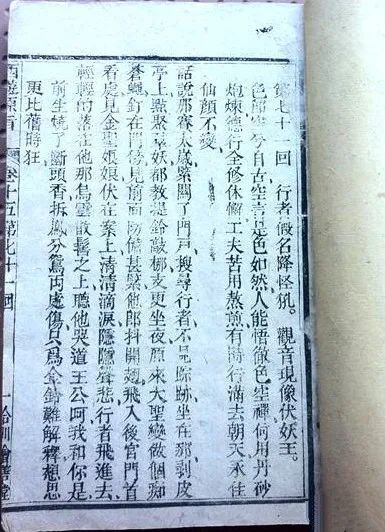 第七十一回　行者假名降怪犼。觀音現像伏妖王。
色卽空兮自古空言是色如然人能悟徹色空禪何用丹砂
炮煉德行全修休懈工夫苦用熬煎有時行滿去朝天永住
仙顏不變
話說那賽太歲緊關了門戶搜尋行者不見踪跡坐在那剝皮
亭上點聚羣妖都教提鈴敲梆支更坐夜原來大聖變做個痴
蒼蠅釘在門傍見前面防備甚緊他卽抖開翅飛入後宮門首
看處見金聖娘娘伏在案上清清滴淚隱隱聲悲行者飛進去
輕輕的落在他那烏雲散髻之上聽他哭道王公呵我和你是
前生燒了斷頭香拆鳳分鴛兩處傷只爲金鈴難解釋想思
更比舊時狂
西遊原旨 卷十五第七十一回 一